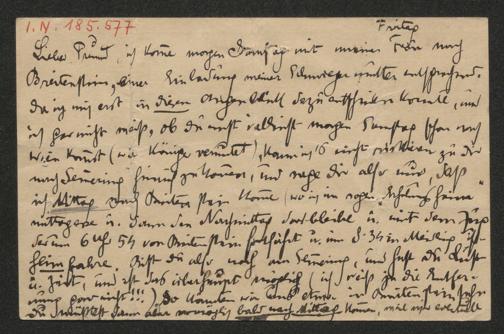 I.N. 185.577
Freitag
Lieber Freund, ich komme morgen Samstag mit meiner Frau nach
Breitenstein, einer Einladung meiner Schwiegermutter entsprechend.
da ich mich erst in diesem Augenblick dazu entschließen konnte, und
ich gar nicht weiß, ob du nicht vielleicht morgen Samstag schon nach
Wien kommst (wie König vermutet), kann ich's nicht zu dir
nach Semmering hinauf zu kommen, und sage dir also nur, daß
ich Mittag nach Breitenstein komme (wo ich im
u. dann den Nachmittag dort bleibe u. mit dem Zug
der um 6 Uhr 54 von Breitenstein fortfährt u. um 8.34 in Meidling ist
heim fahre. Bist du also noch am Semmering, und hast du Lust
u. Zeit, und ist das überhaupt möglich (ich weiß ja die
gar nicht!!!) da könnten wir uns etwa in Breitenstein sehn
du müßtest dann aber womöglich bald nach Mittag kommen, weil wir eventuell